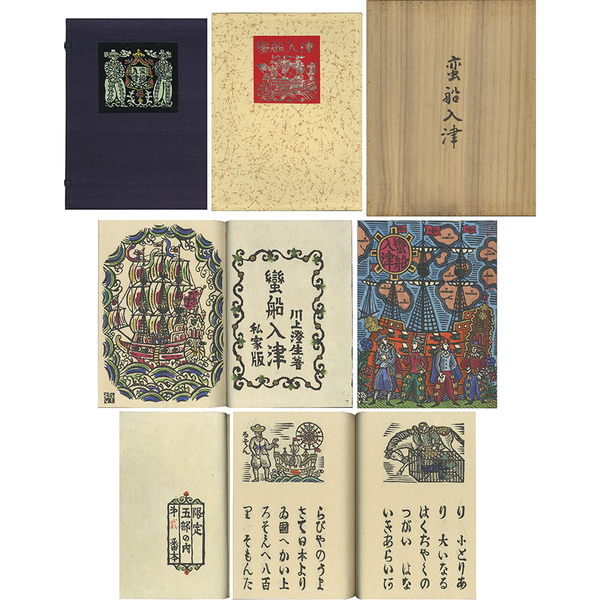 蠻船入・津
蛮船入津
川上澄生著
蠻船入津
私家版
蠻船入津
限定
五部の内
り 小とりあ
り 大いなる
はくぢやくの
つがい はな
いきあらいに
ろそん
らびやのうよ
さて日本より
ゐ國へかい上
ろそんへ八百
里 そもんた